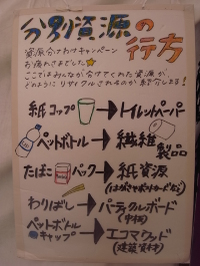 分別資源の
行方
資源分さわキャンペーン
お疲れさまでした
ここではみんなが分けてくれた資源が
どのようにリサイクルされるのか紹介します!
紙コップ → トイレットペーパー
ペットボトル → 繊維製品
たばこパック → 紙資源
(はがきやポストカードなど)
わりばし → パーティクルボード
(中板)
ペットボトル
キャップ → エコマウッド
(建築資材)